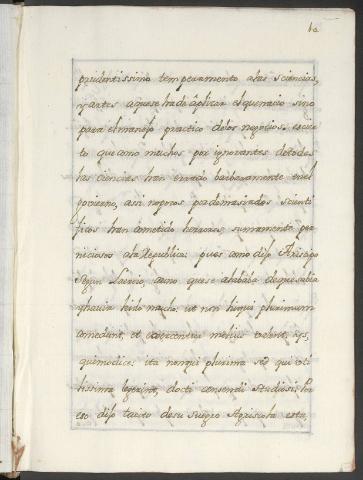 prudentissimo temperamento a las sciencias,
y artes aquese ha de aplicar el que nacio sino
para el manejo practico de los negocios: es cier
to que como muchos por ignorantes de todas
las Ciencias han errado barbaramente en el
govierno, assi no pocos por demasiados scienti
ficos han cometido herrores, sumamente per
niciosos a la Republica: pues como dijo Aristipo
segun Laercio a uno que se alababa de que sabia
y havia leido mucho. ut non hi qui plurimum
comedunt, et exercentur melius valent, ijs,
qui modice: ita non qui plurima sed qui uti
lissima legerint, docti censendi Studiosi. Por
eso dijo tacito de su suegro Agricola esta